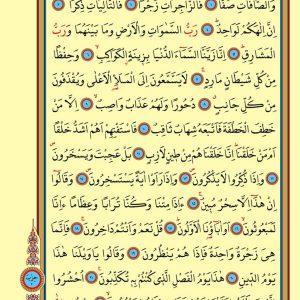 وَالصَّافَّاتِ صَفًّا ۝ فَالزَّاجِرَاتِ زَجْرًا ۝ فَالتَّالِيَاتِ ذِكْرًا ۝
اِنَّ اِلٰهَكُمْ لَوَاحِدٌ ۝ رَبُّ السَّمٰوَاتِ وَالْاَرْضِ وَمَا بَيْنَهُمَا وَرَبُّ
الْمَشَارِقِ ۝ اِنَّا زَيَّنَّا السَّمَآءَ الدُّنْيَا بِزِينَةٍ الْكَوَاكِبِ ۝ وَحِفْظًا
مِنْ كُلِّ شَيْطَانٍ مَارِدٍ ۝ لَا يَسَّمَّعُونَ اِلَى الْمَلَاِ الْاَعْلٰى وَيُقْذَفُونَ
مِنْ كُلِّ جَانِبٍ ۝ دُحُورًا وَلَهُمْ عَذَابٌ وَاصِبٌ ۝ اِلَّا مَنْ
خَطِفَ الْخَطْفَةَ فَاَتْبَعَهُ شِهَابٌ ثَاقِبٌ ۝ فَاسْتَفْتِهِمْ اَهُمْ اَشَدُّ خَلْقًا
اَمْ مَنْ خَلَقْنَا اِنَّا خَلَقْنَاهُمْ مِنْ طِينٍ لَازِبٍ ۝ بَلْ عَجِبْتَ وَيَسْخَرُونَ ۝
وَاِذَا ذُكِّرُوا لَا يَذْكُرُونَ ۝ وَاِذَا رَاَوْا اٰيَةً يَسْتَسْخِرُونَ ۝ وَقَالُٓوا
اِنْ هٰذَٓا اِلَّا سِحْرٌ مُبِينٌ ۝ ءَاِذَا مِتْنَا وَكُنَّا تُرَابًا وَعِظَامًا ءَاِنَّا
لَمَبْعُوثُونَ ۝ اَوَاٰبَآؤُنَا الْاَوَّلُونَ ۝ قُلْ نَعَمْ وَاَنْتُمْ دَاخِرُونَ ۝ فَاِنَّمَا
هِيَ زَجْرَةٌ وَاحِدَةٌ فَاِذَا هُمْ يَنْظُرُونَ ۝ وَقَالُوا يَا وَيْلَنَا هٰذَا
يَوْمُ الدِّينِ ۝ هٰذَا يَوْمُ الْفَصْلِ الَّذِي كُنْتُمْ بِهِ تُكَذِّبُونَ ۝ اُحْشُرُوا